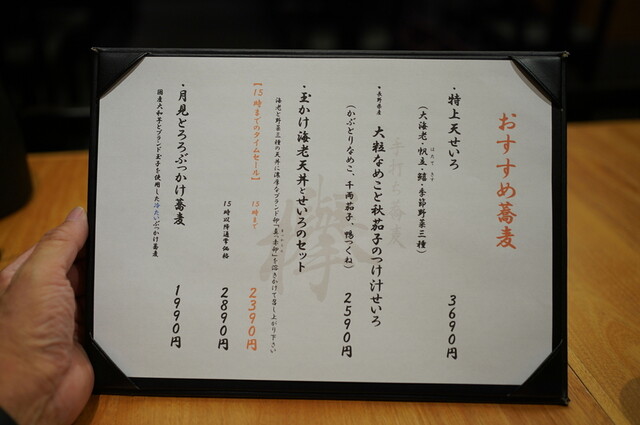 おすすめ蕎麦
・特上天せいろ
(大海老・帆立・鱚・季節野菜三種)
3690円
・長野県産 大粒なめこと秋茄子のつけ汁せいろ
(かぶとりなめこ、千両茄子、鴨つくね)
2590円
・玉かけ海老天丼とせいろのセット
海老と野菜三種の天丼に濃厚なブランド卵を溶きかけて召し上がり下さい
【15時までのタイムセール】 15時まで 2390円
15時以降通常価格 2890円
・月見とろろぶっかけ蕎麦
国産大和芋とブランド玉子を使用した冷たいぶっかけ蕎麦
1990円
手打ち蕎麦
欅